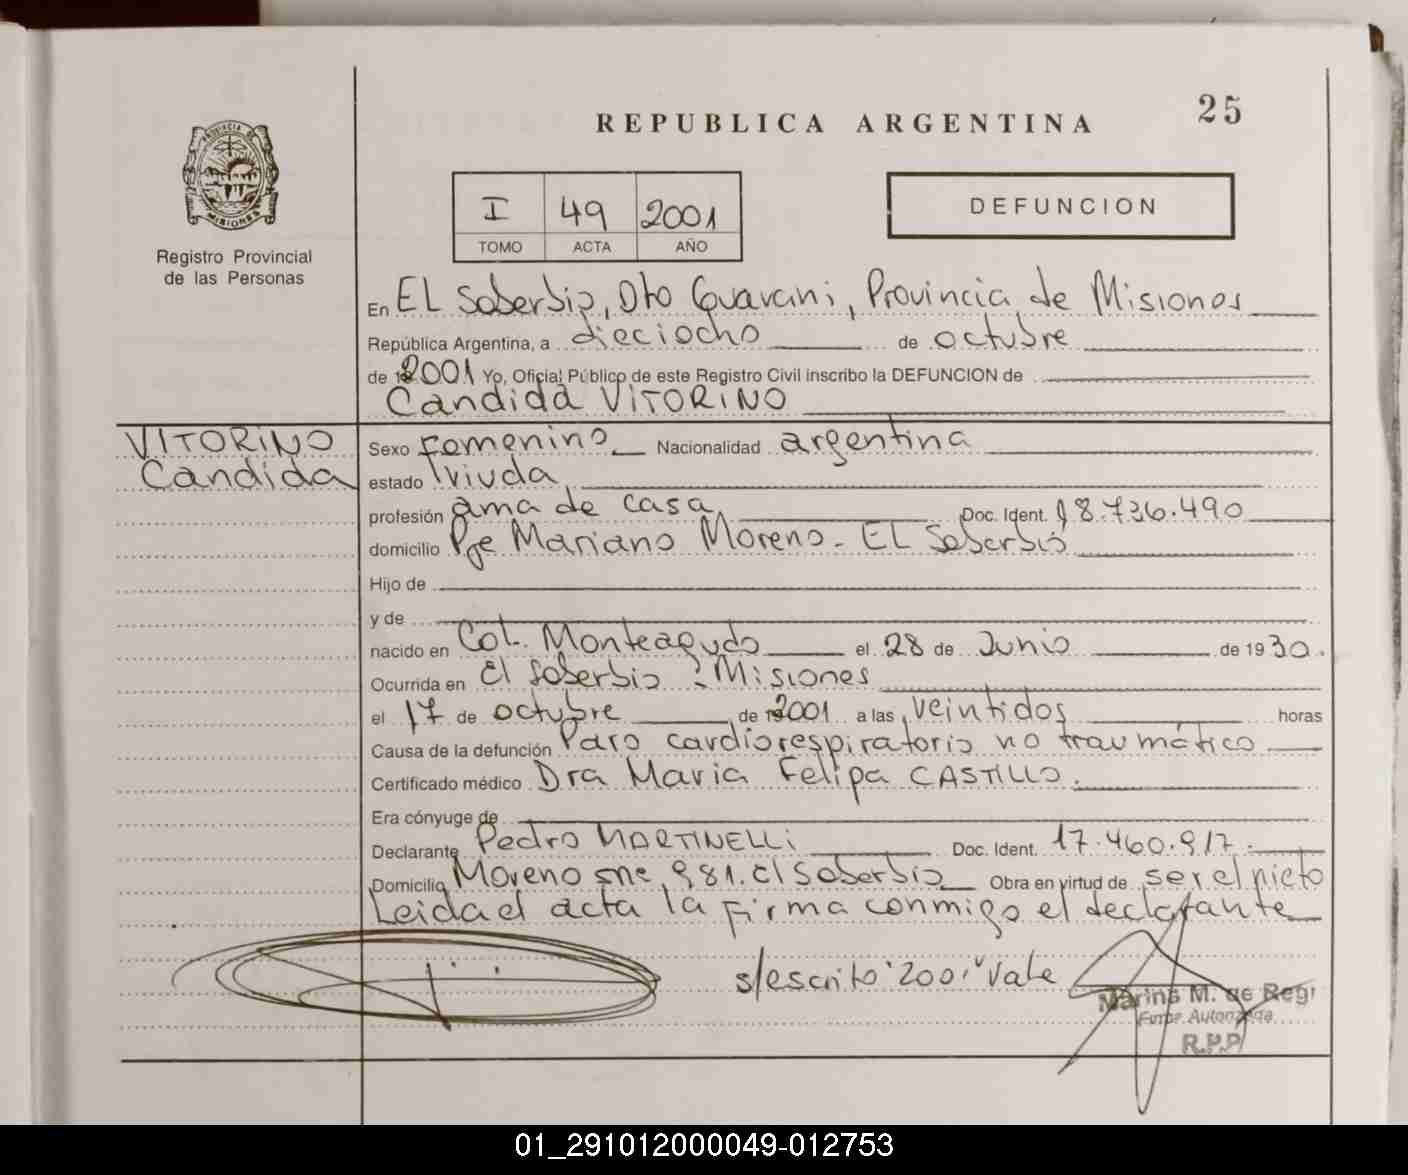 25
REPUBLICA ARGENTINA
PROVINCIA DE
MISIONES
Registro Provincial
de las Personas
I 49 2001
TOMO ACTA AÑO
DEFUNCION
En EL Soberbio, Dto Guarani, Provincia de Misiones
República Argentina, a dieciocho de octubre
de 2001 Yo, Oficial Público de este Registro Civil inscribo la DEFUNCION de
Candida VITORINO
VITORINO
Candida
Sexo femenino Nacionalidad argentina
estado viuda
profesión ama de casa Doc. Ident. 18.736.490
domicilio Pje Mariano Moreno - EL Soberbio
Hijo de
y de
nacido en Col. Monteagudo el 28 de Junio de 1930.
Ocurrida en El Soberbio - Misiones
el 17 de octubre de 2001 a las veintidos horas
Causa de la defunción Paro cardiorespiratorio no traumático
Certificado médico Dra Maria Felipa CASTILLO.
Era cónyuge de
Declarante Pedro MARTINELLi Doc. Ident. 17.460.917.
Domicilio Moreno 981. El Soberbio Obra en virtud de ser el nieto
Leida el acta la firma conmigo el declarante
s/escrito "2001" Vale
Marina M. de Regi
Firma Autorizada
R.P.P
01_291012000049-012753